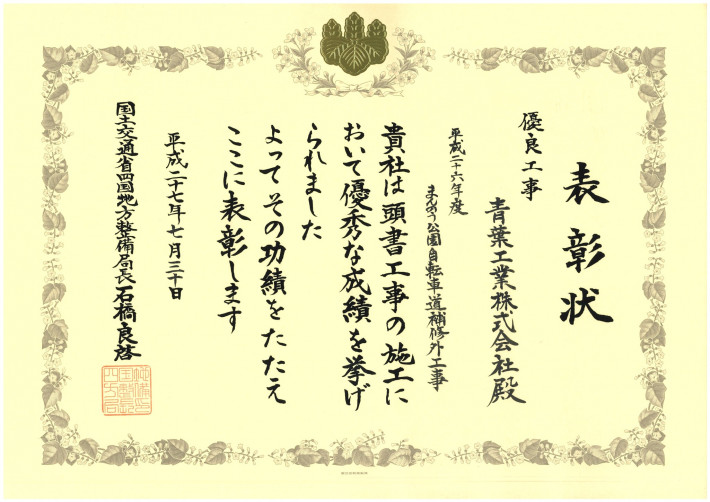 表彰状
優良工事
青葉工業株式会社殿
平成二十六年度
まんのう公園自転車道補修外工事
貴社は頭書工事の施工に
おいて優秀な成績を挙げ
られました
よってその功績をたたえ
ここに表彰します
平成二十七年七月三十日
国土交通省四国地方整備局長石橋良啓